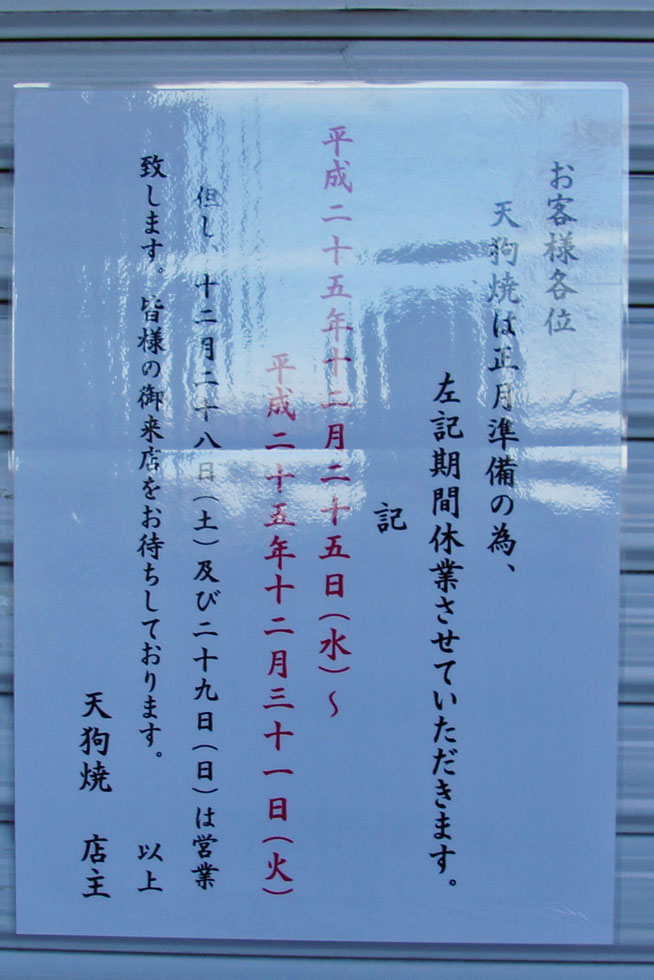 お客様各位
天狗焼は正月準備の為、
左記期間休業させていただきます。
記
平成二十五年十二月二十五日(水)~
平成二十五年十二月三十一日(火)
但し、十二月二十八日(土)及び二十九日(日)は営業
致します。皆様の御来店をお待ちしております。
以上
天狗焼 店主